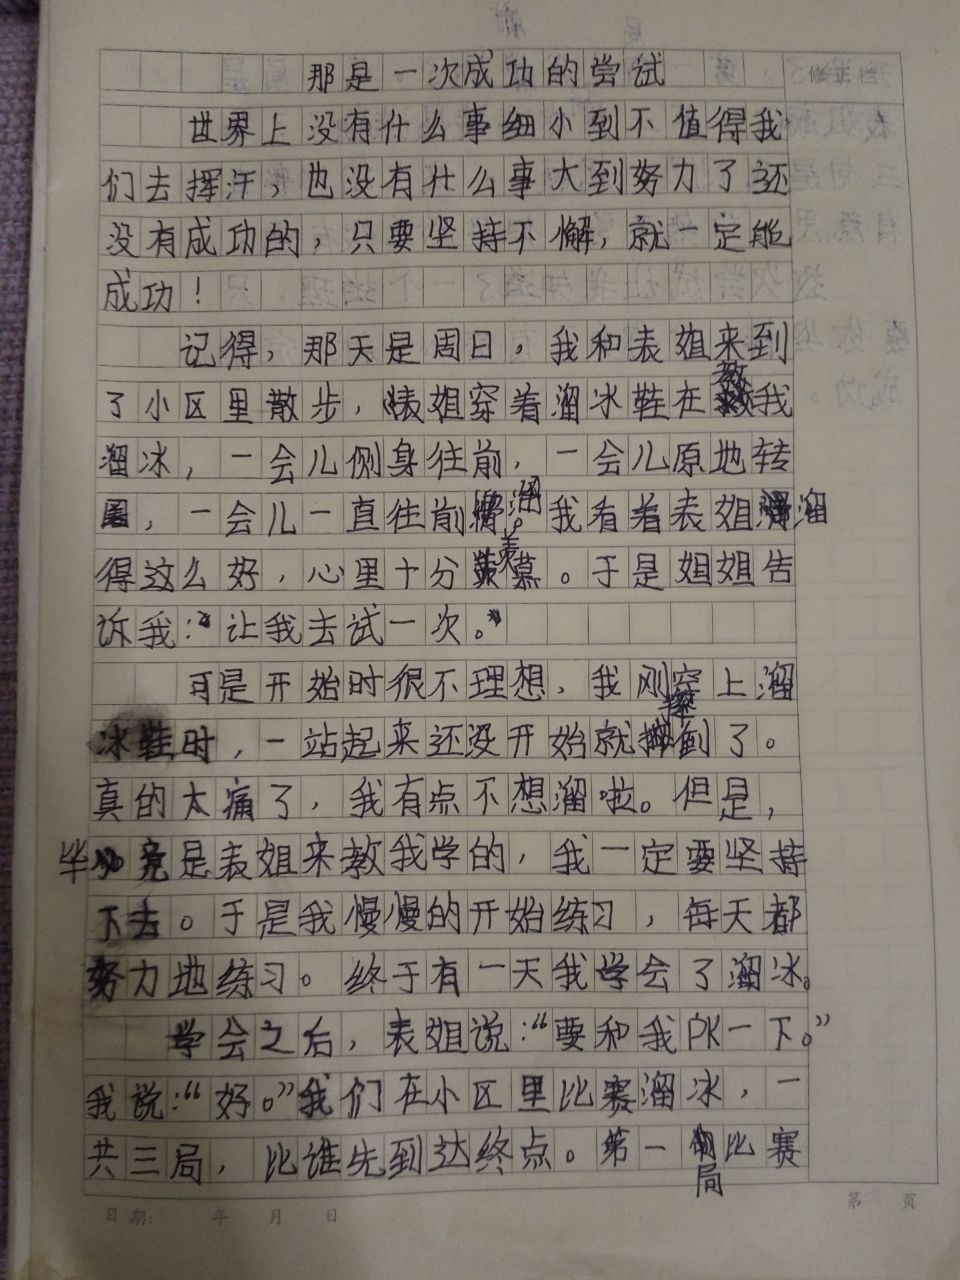 那是一次成功的尝试
修正栏
世界上没有什么事细小到不值得我
们去挥汗，也没有什么事大到努力了还
没有成功的，只要坚持不懈，就一定能
成功！
记得，那天是周日，我和表姐来到
了小区里散步，表姐穿着溜冰鞋在教我
溜冰，一会儿侧身往前，一会儿原地转
圈，一会儿一直往前溜。我看着表姐溜
得这么好，心里十分羡慕。于是姐姐告
诉我：“让我去试一次。”
可是开始时很不理想，我刚穿上溜
冰鞋时，一站起来还没开始就摔倒了。
真的太痛了，我有点不想溜啦。但是，
毕竟是表姐来教我学的，我一定要坚持
下去。于是我慢慢的开始练习，每天都
努力地练习。终于有一天我学会了溜冰。
学会之后，表姐说：“要和我PK一下。”
我说：“好。”我们在小区里比赛溜冰，一
共三局，比谁先到达终点。第一局比赛
日期： 年 月 日
第 页